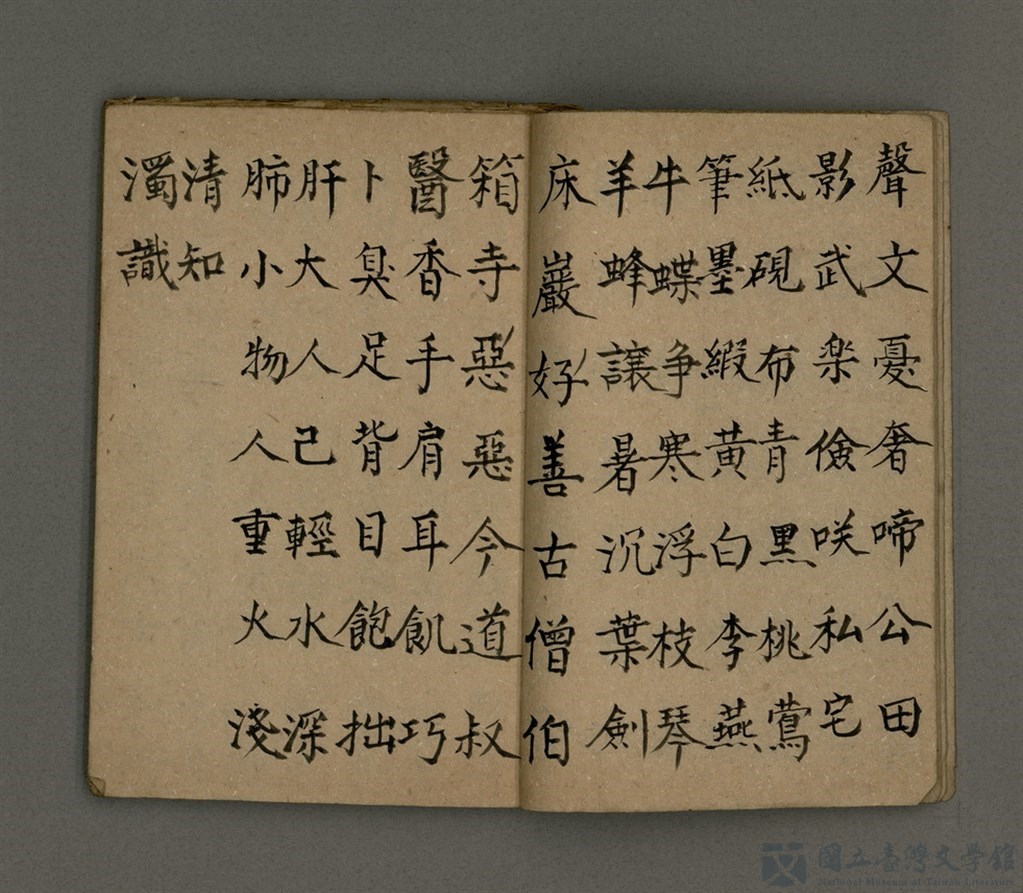 聲文憂奢啼公田
影武楽儉咲私宅
紙硯布青黒桃鶯
筆墨緞黃白李燕
牛蝶争寒浮枝琴
羊蜂讓暑沉葉劍
床巖好善古僧伯
箱寺惡惡今道叔
醫香手肩耳飢巧
卜臭足背目飽拙
肝大人己輕水深
肺小物人重火淺
清知
濁識
國立臺灣文學館
National Museum of Taiwan Literature